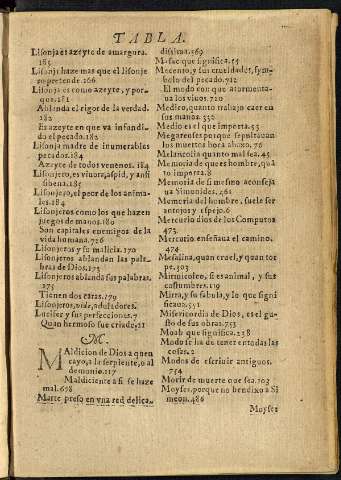 TABLA.
Lisonja es azeyte de amargura.
185
Lisonja haze mas que el lisonje
ro pretende. 166
Lisonja es como azeyte, y por-
que. 181
Ablanda el rigor de la verdad.
182
Es azeyte en que va infundi-
do el pecado. 182
Lisonja madre de inumerables
pecados. 184
Azeyte de todos venenos. 184
Lisonjero, es vivora, aspid, y anfi
sibena. 185
Lisonjero, el peor de los anima-
les. 184
Lisonjeros como los que hazen
juegos de manos. 180
Son capitales enemigos de la
vida humana. 726
Lisonjeros y su malicia. 170
Lisonjeros ablandan las pala-
bras de Dios. 173
Lisonjeros ablanda sus palabras.
175
Tienen dos caras. 179
Lisonjeros, vide, aduladores.
Lucifer y sus perfecciones. 7
Quan hermoso fue criado. 11
M.
MAldicion de Dios a quen
cayo, a la serpiente, o al
demonio. 117
Maldiciente a si se haze
mal. 698
Marte preso en vna red delica-
dissima. 569
Masac que significa. 55
Mecento, y sus crueldades, sym-
bolo del pecado. 712
El modo con que atormenta-
ua los viuos. 720
Medico, quanto trabajo caer en
sus manos. 550
Medio es el que importa. 53
Megarenses porque sepultauan
los muertos boca abaxo. 76
Melancolia quanto mal sea. 45
Memoria de que es hombre, quã
to importa. 8
Memoria de si mesmo aconseja
ua Simonides. 461
Memoria del hombre, suele ser
antojos y espejo. 6
Mercurio dios de los Computos
473
Mercurio enseñaua el camino.
474
Messalina, quan cruel, y quan tor
pe. 303
Mirmicoleo, si es animal, y sus
costumbres. 119
Mirra, y su fabula, y lo que signi
fica. 701. 551
Misericordia de Dios, es el gu-
sto de sus obras. 753
Moab que significa. 218
Modo se ha de tener en todas las
cosas. 2
Modos de escriuir antiguos.
754
Morir de muerte que sea. 103
Moyses, porque no bendixo a Si
meon. 486
Moyses